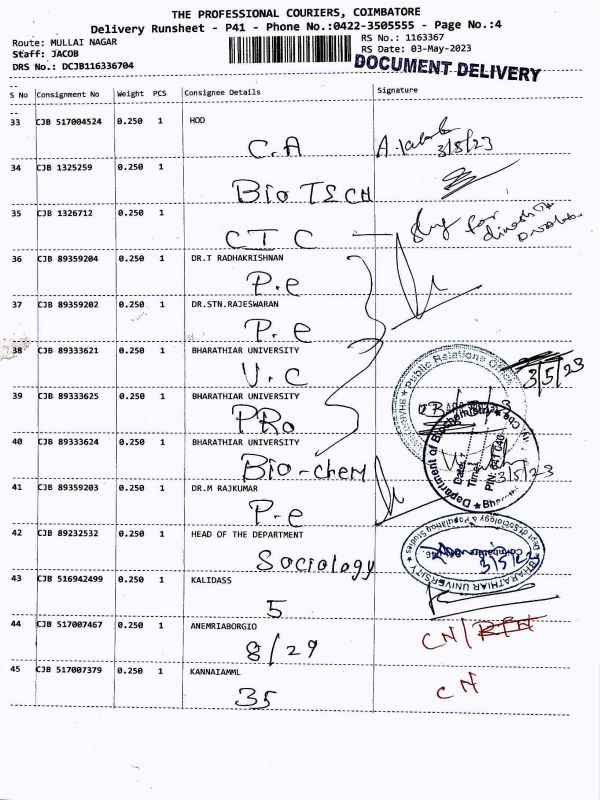 THE PROFESSIONAL COURIERS, COIMBATORE
Delivery Runsheet - P41 - Phone No.:0422-3505555 - Page No.:4
Route: MULLAI NAGAR RS No.: 1163367
Staff: JACOB RS Date: 03-May-2023
DRS No.: DCJB116336704 DOCUMENT DELIVERY
S No Consignment No Weight PCS Consignee Details Signature
33 CJB 517004524 0.250 1 HOD
C.A 3/5/23
34 CJB 1325259 0.250 1
Bio TECH
35 CJB 1326712 0.250 1
CTC for
36 CJB 89359204 0.250 1 DR.T RADHAKRISHNAN
P.e
37 CJB 89359202 0.250 1 DR.STN.RAJESWARAN
P.e
38 CJB 89333621 0.250 1 BHARATHIAR UNIVERSITY
V.C 3/5/23
39 CJB 89333625 0.250 1 BHARATHIAR UNIVERSITY
PRo
Public Relations
40 CJB 89333624 0.250 1 BHARATHIAR UNIVERSITY
Bio-chem 3/5/23
Department of Biochemistry
Date:
Time:
PIN: 641 046
41 CJB 89359203 0.250 1 DR.M RAJKUMAR
P-e
42 CJB 89232532 0.250 1 HEAD OF THE DEPARTMENT
Sociology 3/5/23
Dept of Sociology & Population Studies
BHARATHIAR UNIVERSITY
43 CJB 516942499 0.250 1 KALIDASS
5
44 CJB 517007467 0.250 1 ANEMRIABORGIO
8/29 CN/
45 CJB 517007379 0.250 1 KANNAIAMML
35 CN